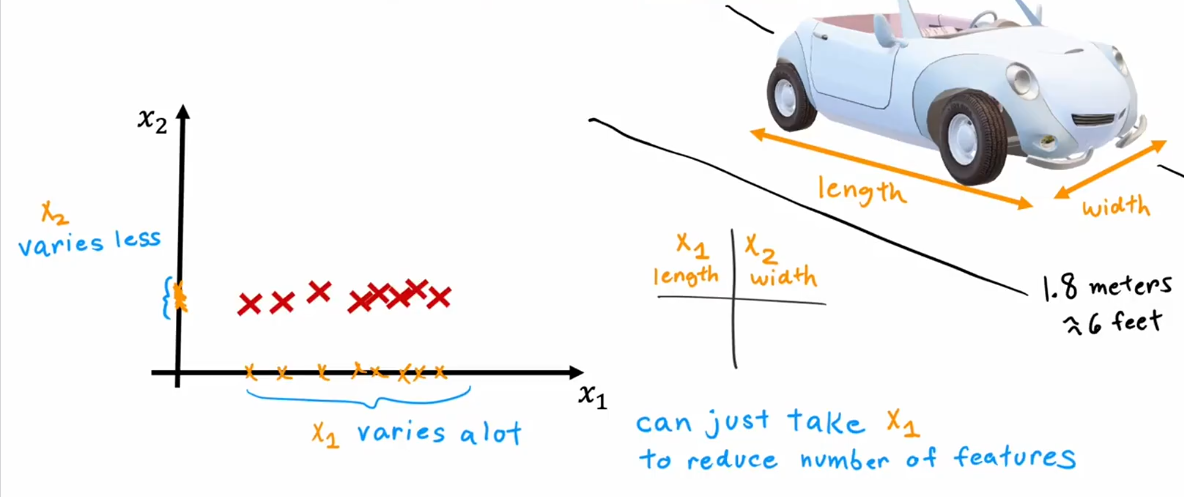 x₂
x₂
varies less
x₁
x₁ varies a lot
length
width
x₁
length
x₂
width
1.8 meters
≈6 feet
can just take x₁
to reduce number of features